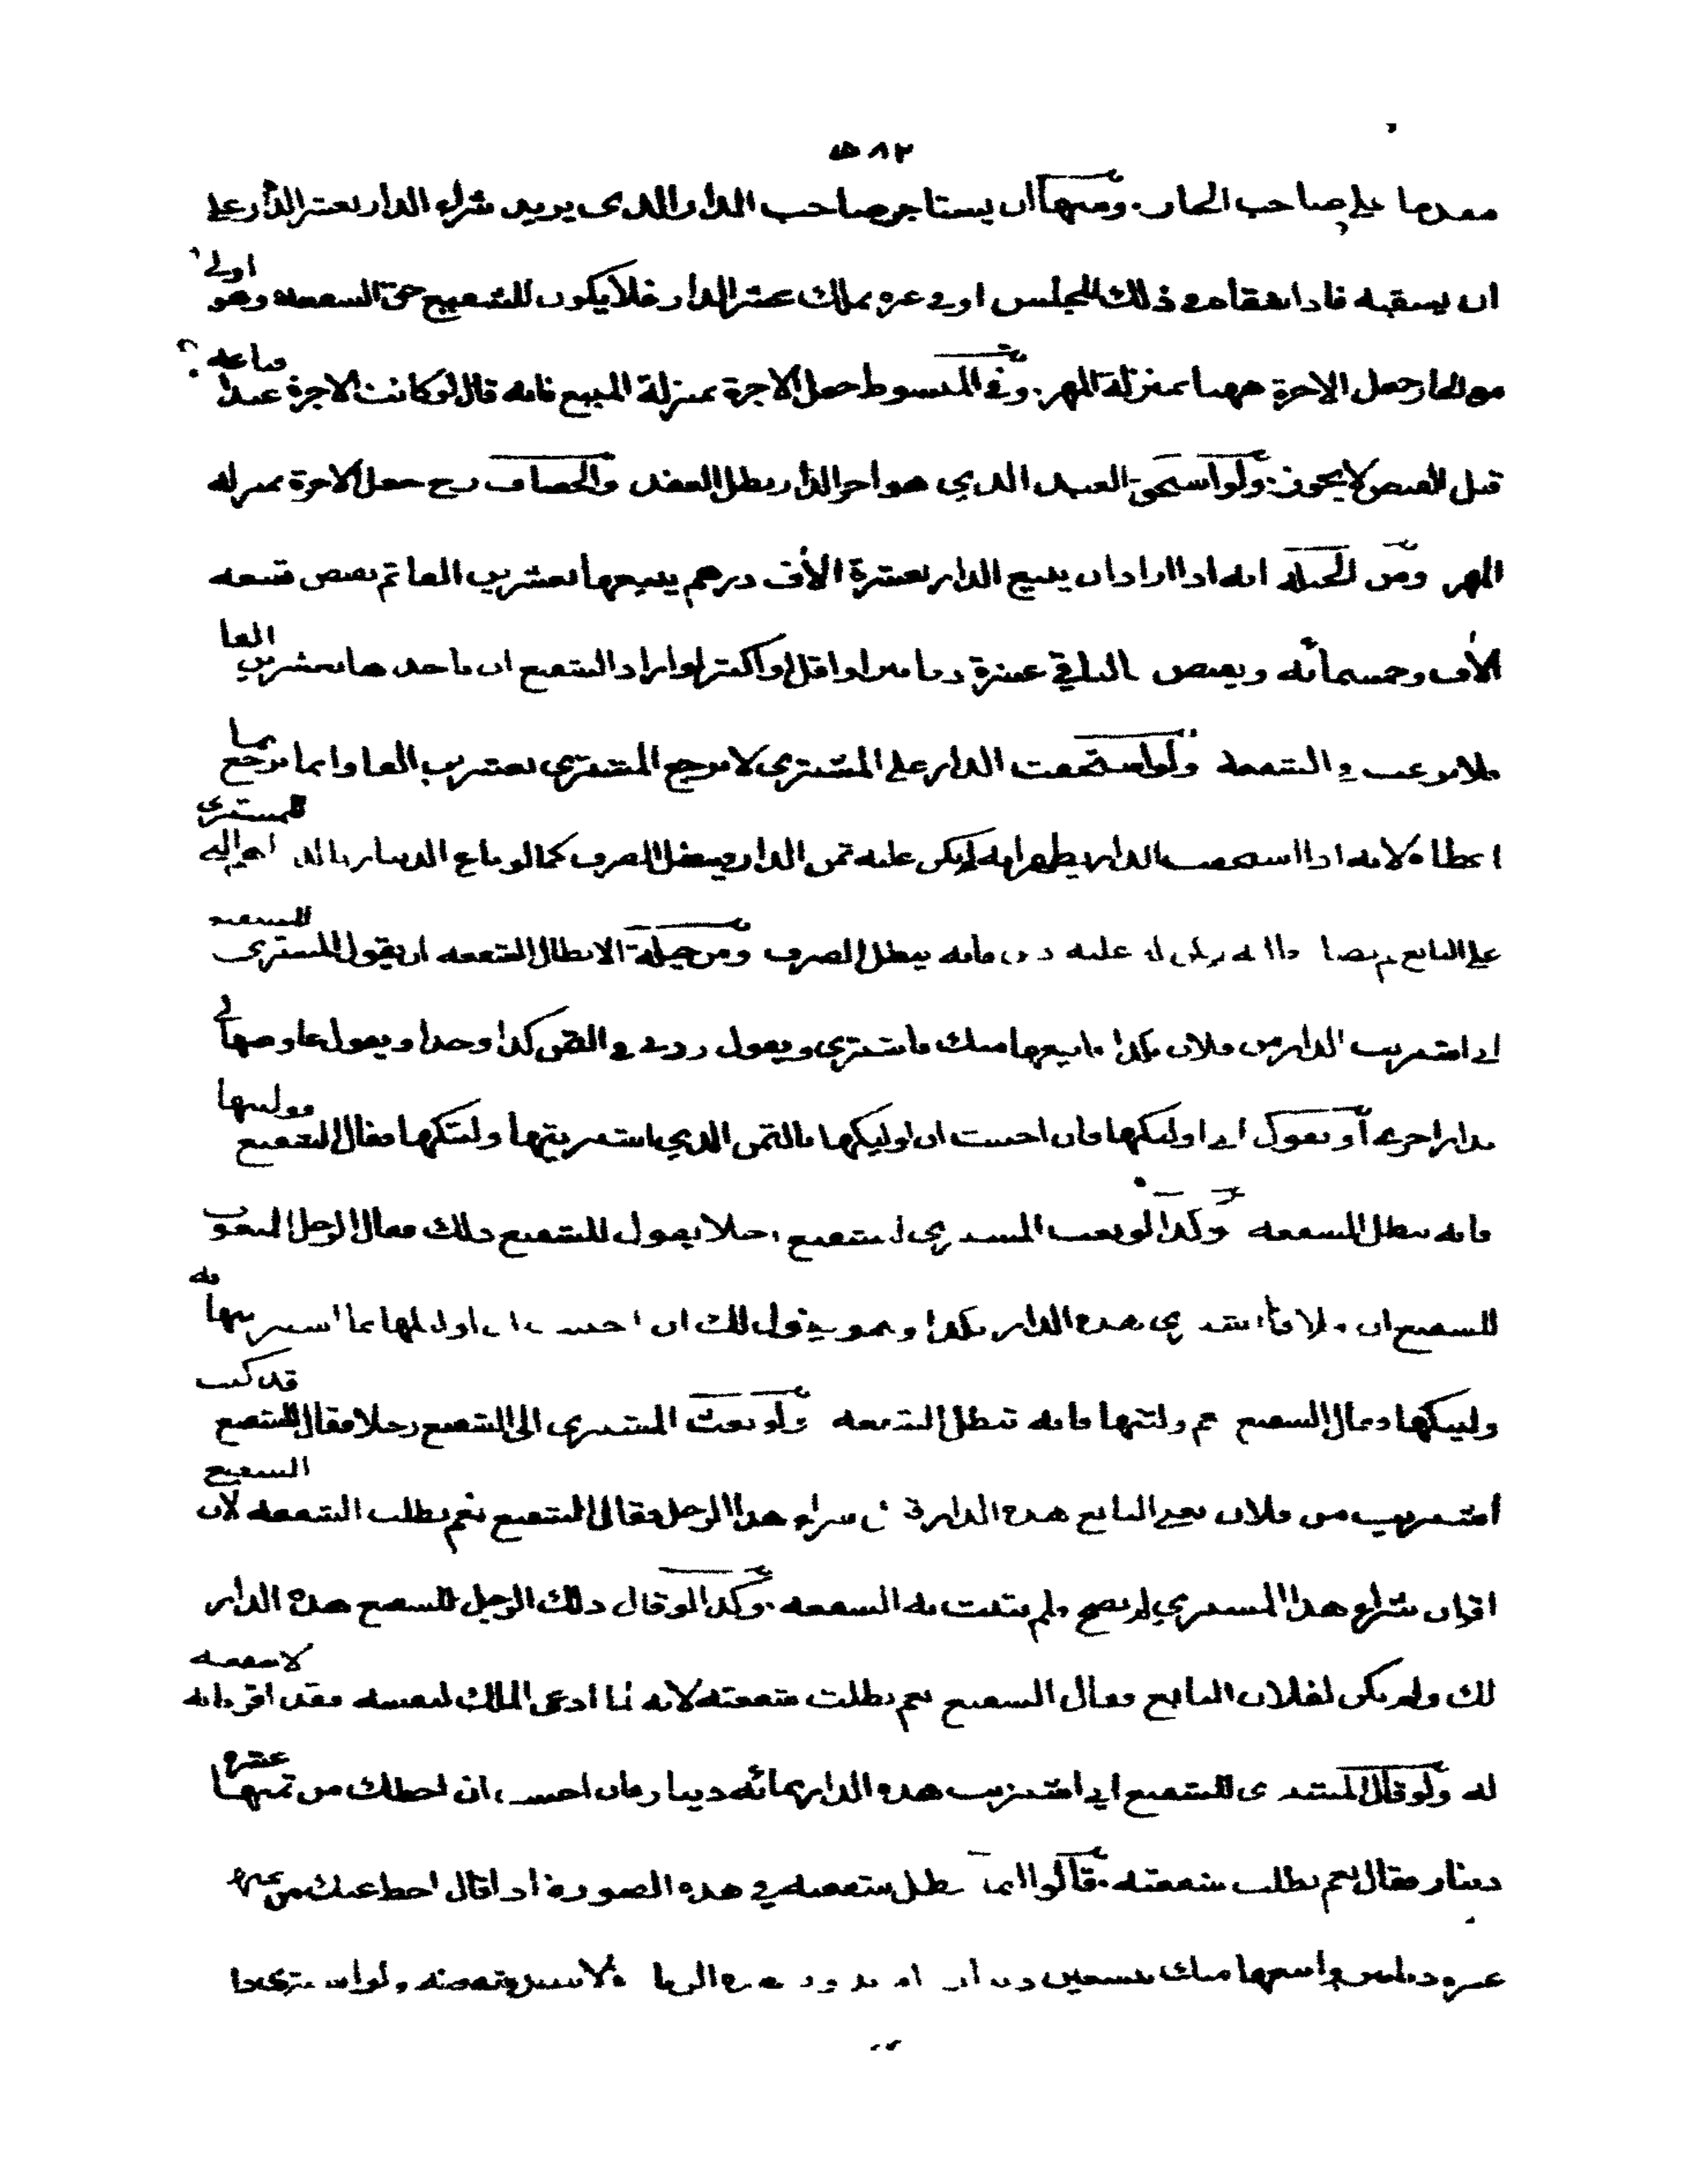 ٥٨٢
مقدما على صاحب الجار ومنها ان يستاجر صاحب الدار الذى يريد شراء الدار بعشر الدار على
ان يسقيه فاذا سقاه فى ذلك المجلس او فى غيره يملك عشر الدار فلا يكون للشفيع حق الشفعة وهو اولى
مع الجار جعل الاجرة ههنا بمنزلة المهر وفى المبسوط جعل الاجرة بمنزلة المبيع فانه قال لو كانت الاجرة عبدا فباعه
قبل القبض لا يجوز ولو استحق العبد الذي هو اجر الدار بطل العقد والخصاف رح جعل الاجرة بمنزلة
المهر ومن الحيلة انه اذا اراد ان يبيع الدار بعشرة الاف درهم يبيعها بعشرين الفا ثم يقبض تسعة
الاف وخمسمائة ويقبض بالباقي عشرة دنانير او اقل او اكثر لو اراد الشفيع ان ياخذها بعشرين الفا
فلا يرغب في الشفعة ولو استحقت الدار على المشترى لا يرجع المشترى بعشرين الفا وانما يرجع بما
اعطاه لانه اذا استحقت الدار يظهر انه لم يكن عليه ثمن الدار فيبطل الصرف كما لو باع الدينار بالدراهم التي للمشترى
على البائع ثم تصادقا انه لم يكن له عليه دين فانه يبطل الصرف ومن حيلة الابطال الشفعة ان يقول المشترى للشفيع
اني اشتريت الدار من فلان بكذا فابيعها منك فاشترى ويقول زدني في الثمن كذا وخذا ويقول عاوضها لى
بدار اخرى او يقول اني اوليكها فان احببت ان اوليكها بالثمن الذي اشتريتها وليتكها فقال الشفيع فولنيها
فانه تبطل الشفعة وكذا لو بعث المشتري للشفيع رجلا يقول للشفيع ذلك فقال الرجل المبعوث
للشفيع ان فلانا اشترى هذه الدار بكذا وهو يقول لك ان احببت ان اوليكها بما اشتريتها به
وليتكها وقال الشفيع نعم ولنيها فانه تبطل الشفعة ولو بعث المشترى الى الشفيع رجلا فقال للشفيع قد كنت
اشتريت من فلان يعنى البائع هذه الدار قبل شراء هذا الرجل فقال الشفيع نعم بطلت الشفعة لان الشفيع
اقر ان شراء هذا المشتري لم يصح ولم يثبت به الشفعة وكذا لو قال ذلك الرجل للشفيع هذه الدار
لك ولم يكن لفلان البايع وقال الشفيع نعم بطلت شفعته لانه لما ادعى الملك لنفسه فقد اقر بانه لا شفعة
له ولو قال المشترى للشفيع اني اشتريت هذه الدار بمائة دينار فان احببت ان احطك من ثمنها عشرة
دينار فقال نعم بطلت شفعته قالوا انما تبطل شفعته في هذه الصورة اذا قال احط عنك من ثمنها
عشرة دنانير وابيعها منك بتسعين دينارا فلا تبطل شفعته ولو اشترى